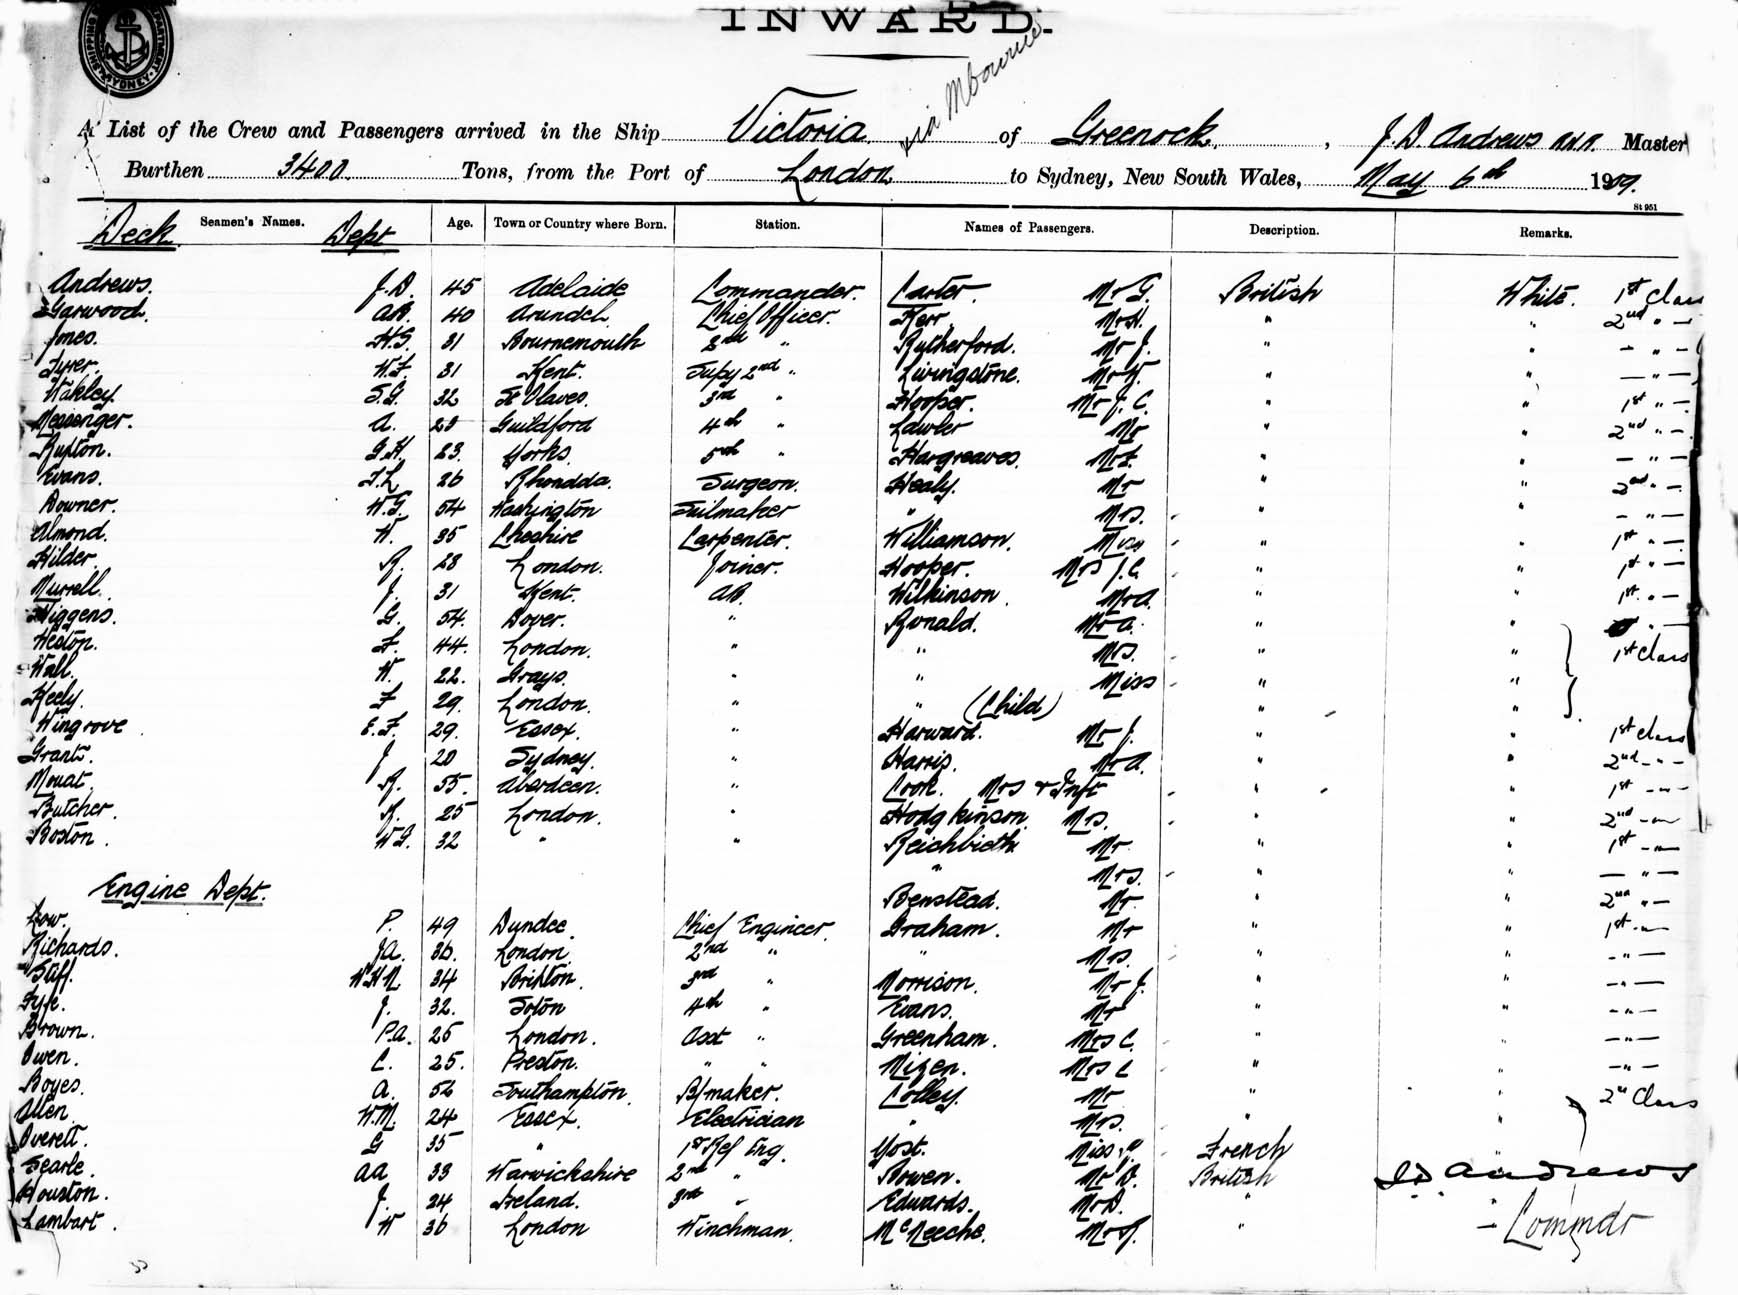 INWARD.
SHIPPING DEPARTMENT SYDNEY
via Mbourne
A List of the Crew and Passengers arrived in the Ship Victoria of Greenock, J. D. Andrews RNR. Master
Burthen 3400 Tons, from the Port of London to Sydney, New South Wales, May 6th 1909.
St 951
Deck Seamen's Names. Dept Age. Town or Country where Born. Station. Names of Passengers. Description. Remarks.
Andrews. J.D. 45 Adelaide Commander. Carter. Mr G. British White. 1st Class
Garwood. 40 Arundel. Chief Officer. Kerr. Mr H. " " 2nd " —
Jones. H.G. 31 Bournemouth 2nd " Rutherford. Mr J. " " — " —
Tyrer. W.F. 31 Kent. Supy 2nd " Livingstone. Mr W. " " — " —
Wakley S.G. 32 St Olaves. 3rd " Hooper. Mr J. C. " " 1st " —
Messenger. A. Guildford 4th " Lawler Mr " " 2nd " —
Rupton. G.H. 23. Yorks. 5th " Hargreaves. " " — " —
Evans. T.L 26 Rhondda. Surgeon. Healy. Mr " " 2nd " —
Downer. W.G. 54 Washington Sailmaker " Mrs. " " — " —
Almond. W. 35 Cheshire Carpenter. Williamson. Miss " " 1st " —
Hilder. R. 28 London. Joiner. Hooper. Mrs J.C. " " 1st " —
Murrell. J. 31 Kent. AB. Wilkinson. Mr A. " " 1st " —
Wiggens. G. 54. Dover. " Ronald. Mr A. " " " —
Weston. F. 44. London. " " Mrs. " " 1st Class
Wall. W. 22. Grays. " " Miss " "
Keely. F 29. London. " " (Child) " "
Wingrove E.F. 29. Essex. " Harward. Mr J. " " 1st Class
Grant. J 20 Sydney. " Harris. Mr A. " " 2nd — " —
Mouat. R. 55. Aberdeen. " Cook. Mrs & Inft " " 1st — " —
Butcher. R. 25 London. " Hodgkinson Mrs. " " 2nd — " —
Boston. 32 " " Reichbieth Mr " " 1st — " —
" Mrs. " " — " —
Engine Dept. Benstead. Mr. " " 2nd " —
Low. P. 49 Dundee. Chief Engineer. Graham. Mr " " 1st — " —
Richards. JA. 36. London. 2nd " " Mrs. " " — " —
Stiff. W.H.N 34 Brixton. 3rd " Morrison. Mr J. " " — " —
Fyfe. J. 32. Soton 4th " Evans. Mr " " — " —
Brown. P.A. 25 London. Asst " Greenham. Mrs C. " " — " —
Owen. C. 25. Preston. " " Mizen. Mrs C " " — " —
Boyes. A. 56 Southampton. B/maker. Colley. Mr " " 2nd Class
Allen. W.M. 24 Essex. Electrician " Mrs. " "
Everett. G 35 " 1st Ref Eng. Yost. Miss French "
Searle. AA 33 Warwickshire 2nd " Bowen. Mr D. British J D Andrews
Houston. J. 24 Ireland. 3rd " Edwards. Mr D. " "
Lambart. W 36 London Winchman. McNeeche. Mr J. " Commdr